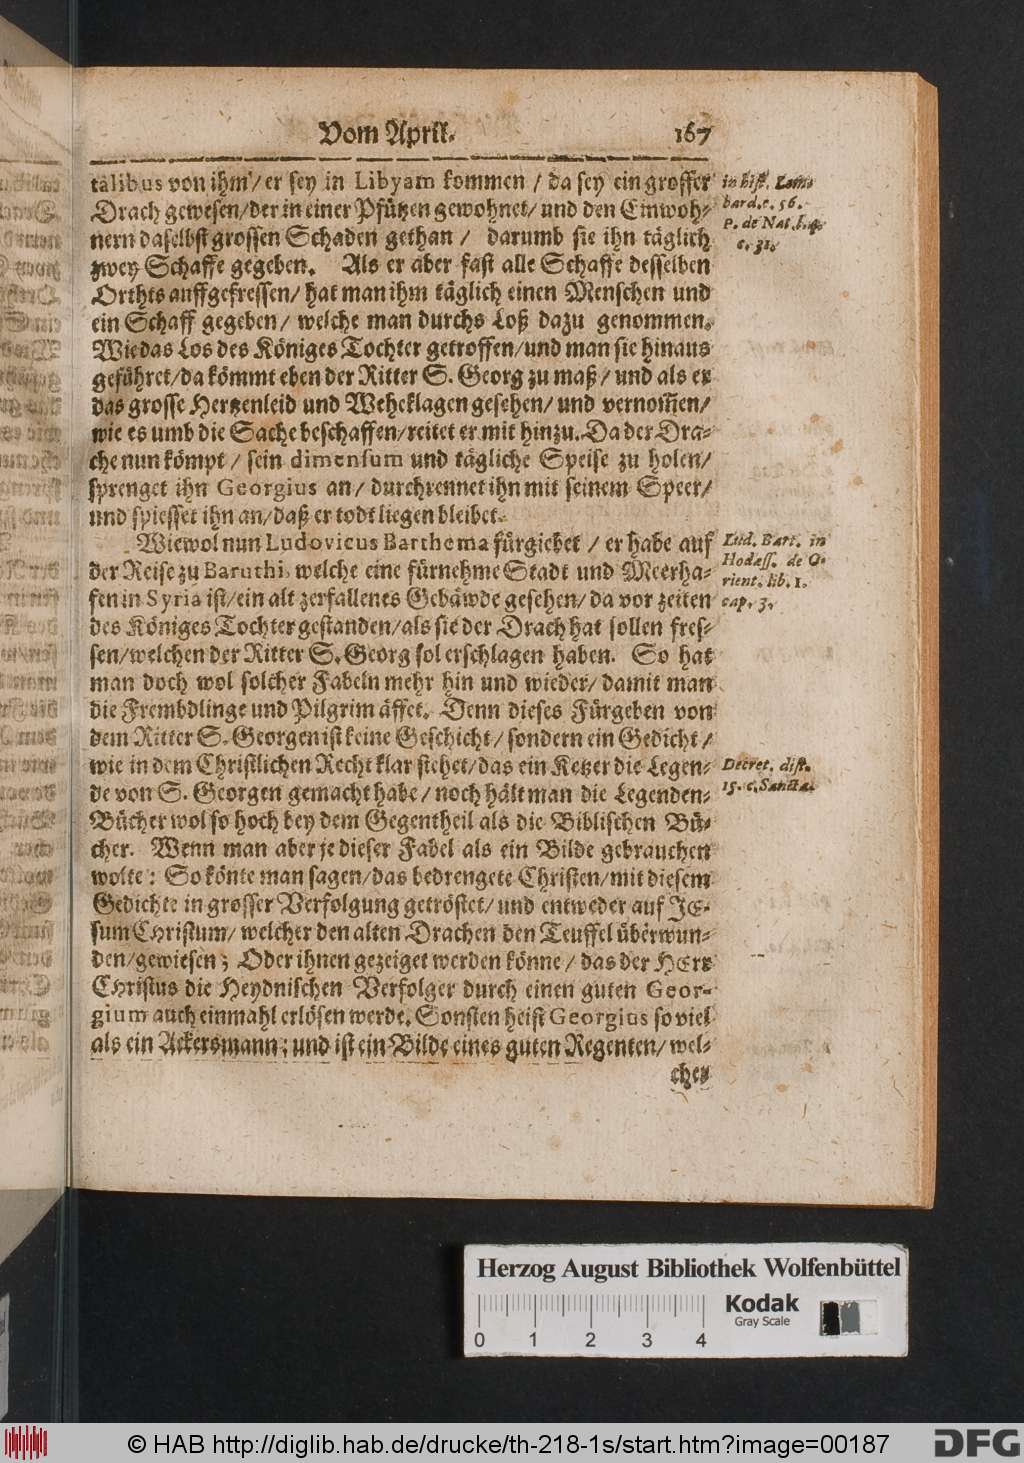 Vom April.
167
talibus von ihm / er sey in Libyam kommen / da sey ein grosser
Drach gewesen / der in einer Pfützen gewohnet / und den Einwoh-
nern daselbst grossen Schaden gethan / darumb sie ihn täglich
zwey Schaffe gegeben. Als er aber fast alle Schaffe desselben
Orthts auffgefressen / hat man ihm täglich einen Menschen und
ein Schaff gegeben / welche man durchs Loß dazu genommen.
Wie das Los des Königes Tochter getroffen / und man sie hinaus
geführet / da kömmt eben der Ritter S. Georg zu maß / und als er
das grosse Hertzenleid und Weheklagen gesehen / und vernom̃en /
wie es umb die Sache beschaffen / reitet er mit hinzu. Da der Dra-
che nun kömpt / sein dimensum und tägliche Speise zu holen /
sprenget ihn Georgius an / durchrennet ihn mit seinem Speer /
und spiesset ihn an / daß er todt liegen bleibet.
Wiewol nun Ludovicus Barthema fürgiebet / er habe auf
der Reise zu Baruthi, welche eine fürnehme Stadt und Meerha-
fen in Syria ist / ein alt zerfallenes Gebäwde gesehen / da vor zeiten
des Königes Tochter gestanden / als sie der Drach hat sollen fres-
sen / welchen der Ritter S. Georg sol erschlagen haben. So hat
man doch wol solcher Fabeln mehr hin und wieder / damit man
die Frembdlinge und Pilgrim äffet. Denn dieses Fürgeben von
dem Ritter S. Georgen ist keine Geschicht / sondern ein Gedicht /
wie in dem Christlichen Recht klar stehet / das ein Ketzer die Legen-
de von S. Georgen gemacht habe / noch hält man die Legenden-
Bücher wol so hoch bey dem Gegentheil als die Biblischen Bü-
cher. Wenn man aber je dieser Fabel als ein Bilde gebrauchen
wolte: So könte man sagen / das bedrengete Christen / mit diesem
Gedichte in grosser Verfolgung getröstet / und entweder auf JE-
sum CHristum / welcher den alten Drachen den Teuffel überwun-
den / gewiesen; Oder ihnen gezeiget werden könne / das der HErr
CHristus die Heydnischen Verfolger durch einen guten Geor-
gium auch einmahl erlösen werde. Sonsten heist Georgius so viel
als ein Ackersmann; und ist ein Bilde eines guten Regenten / wel-
cher
in hist. Lom-
bard. c. 56.
P. de Nat. l. 4.
c. 31.
Lud. Bart. in
Hodœss. de O-
rient. lib. 1.
cap. 3.
Decret. dist.
15. c. Sancta.
Herzog August Bibliothek Wolfenbüttel
0 1 2 3 4
Kodak
Gray Scale
© HAB http://diglib.hab.de/drucke/th-218-1s/start.htm?image=00187
DFG